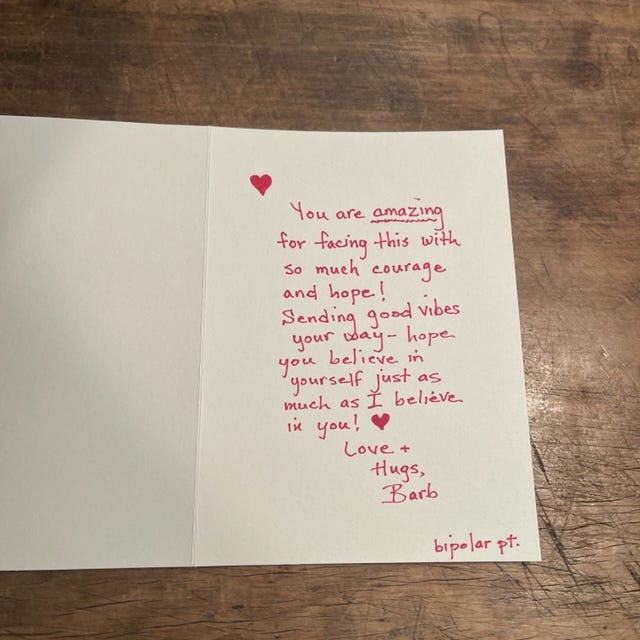 You are amazing
for facing this with
so much courage
and hope!
Sending good vibes
your way- hope
you believe in
yourself just as
much as I believe
in you! ♥
Love +
Hugs,
Barb
bipolar pt.